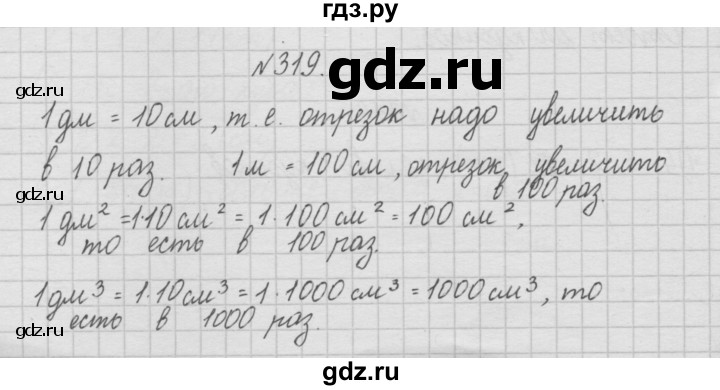 гдз.ру
№319.
gdz.ru
gdz.ru
gdz.ru
1 дм = 10 см, т.е. отрезок надо увеличить
в 10 раз. 1 м = 100 см, отрезок увеличить
в 100 раз.
gdz.ru
gdz.ru
1 дм² = 1·10 см² = 1·100 см² = 100 см²,
то есть в 100 раз.
1 дм³ = 1·10 см³ = 1·1000 см³ = 1000 см³, то
есть в 1000 раз.
gdz.ru
gdz.ru
gdz.ru